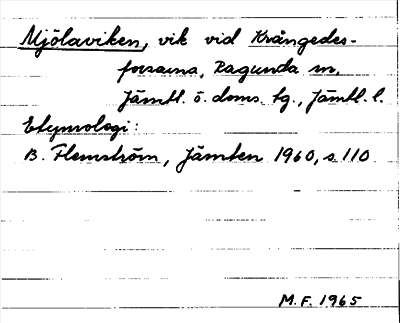 Mjölaviken, vik vid Krångedes-
forsarna, Ragunda sn,
Jämtl. ö. doms. tg., Jämtl. l.
Etymologi:
B. Flemström, Jämten 1960, s 110
M.F. 1965